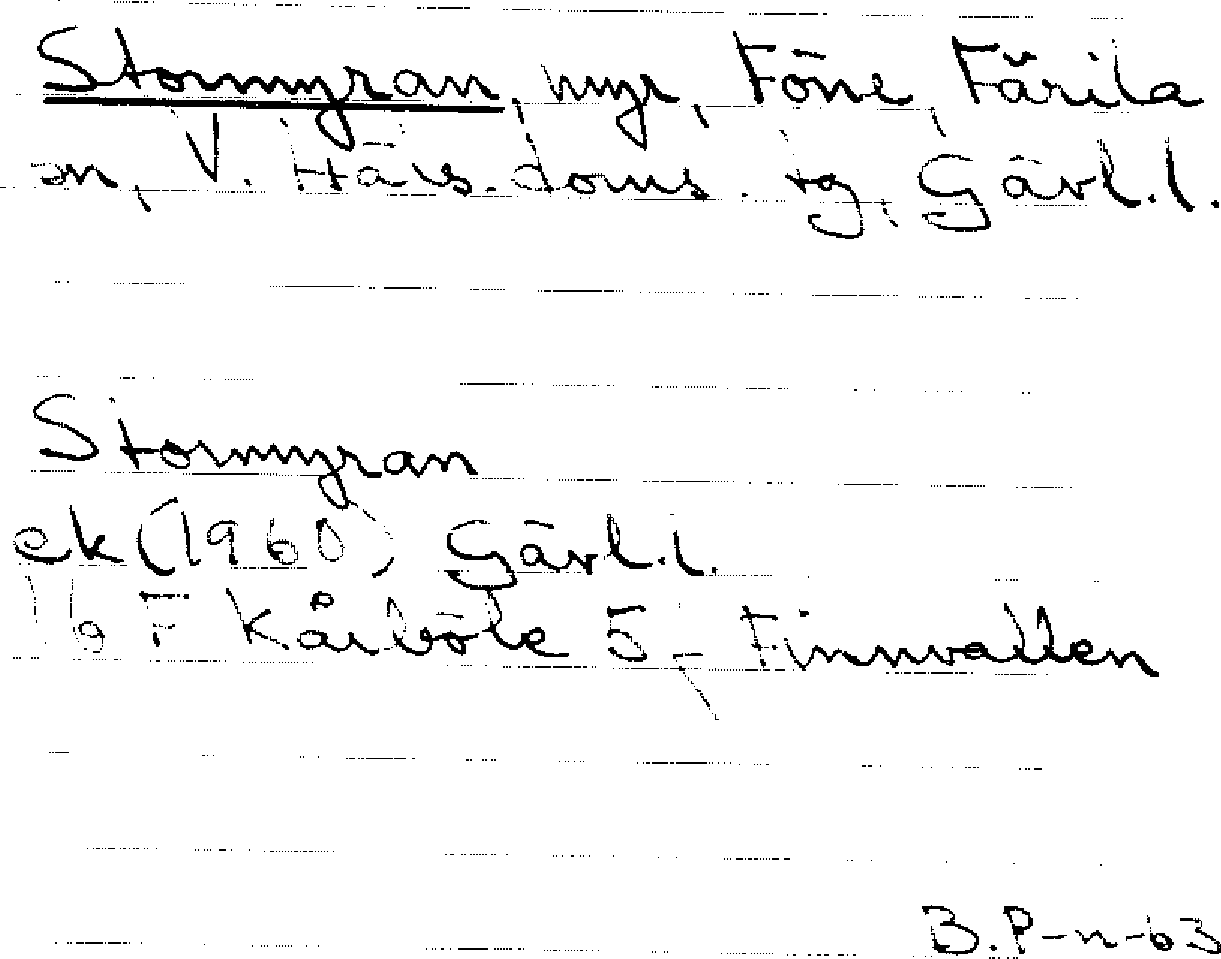 Stormyran, myr, Föne, Färila
sn, V. Häls. doms. tg, Gävl.l.
Stormyran
ek (1960) Gävl.l.
16 F Kårböle 5, Finnvallen
B.P-n-63